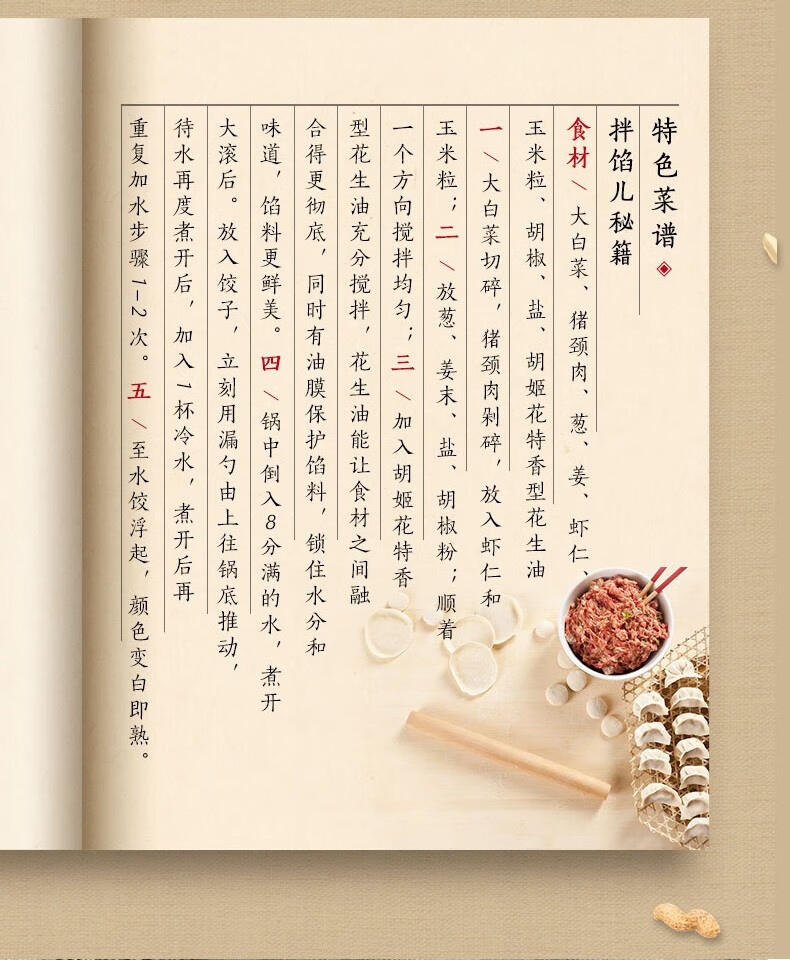 特色菜谱
拌馅儿秘籍
食材\大白菜、猪颈肉、葱、姜、虾仁、
玉米粒、胡椒、盐、胡姬花特香型花生油
一\大白菜切碎，猪颈肉剁碎，放入虾仁和
玉米粒；二\放葱、姜末、盐、胡椒粉；顺着
一个方向搅拌均匀；三\加入胡姬花特香
型花生油充分搅拌，花生油能让食材之间融
合得更彻底，同时有油膜保护馅料，锁住水分和
味道，馅料更鲜美。四\锅中倒入8分满的水，煮开
大滚后。放入饺子，立刻用漏勺由上往锅底推动，
待水再度煮开后，加入1杯冷水，煮开后再
重复加水步骤1-2次。五\至水饺浮起，颜色变白即熟。